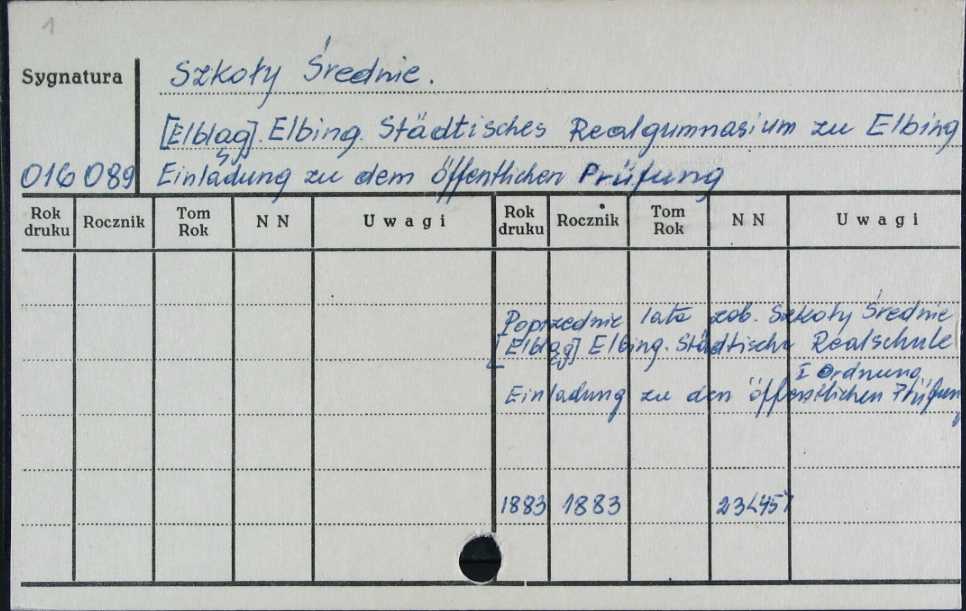 1
Sygnatura
Szkoły Średnie.
[Elbląg]. Elbing. Städtisches Realgymnasium zu Elbing
016 089 Einladung zu dem öffentlichen Prüfung
Rok druku Rocznik Tom Rok N N Uwagi Rok druku Rocznik Tom Rok N N Uwagi
Poprzednie lata zob. Szkoły Średnie
[Elbląg] Elbing. Städtische Realschule
I Ordnung
Einladung zu den öffentlichen Prüfung
1883 1883 23<45>